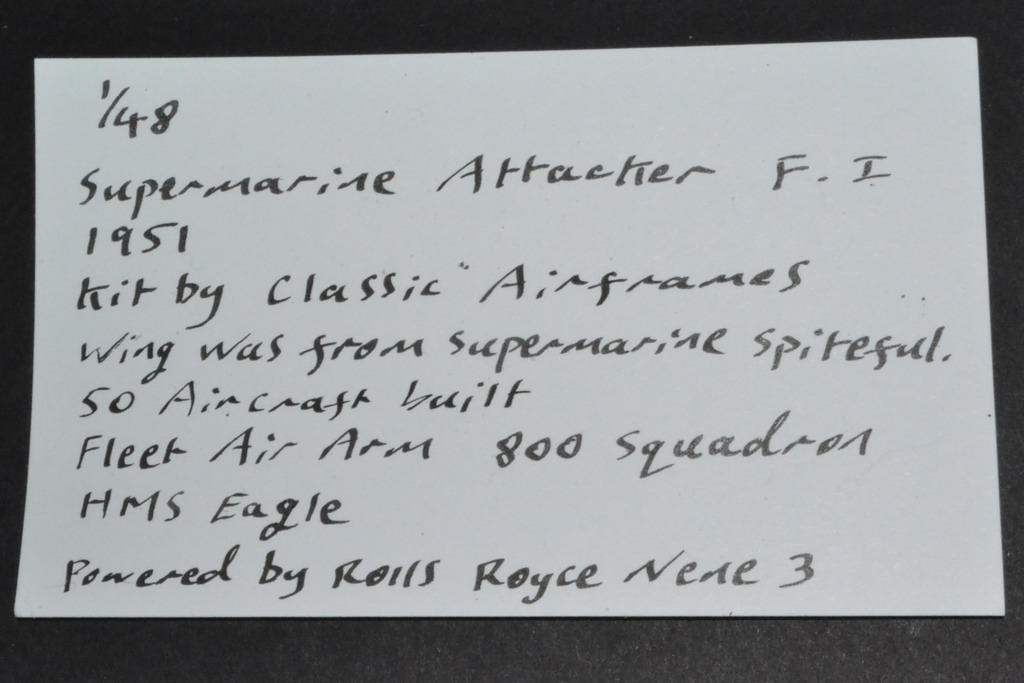 1/48
Supermarine Attacker F. I
1951
Kit by Classic "Airframes
Wing was from Supermarine Spiteful.
50 Aircraft built
Fleet Air Arm 800 Squadron
HMS Eagle
Powered by Rolls Royce Nene 3